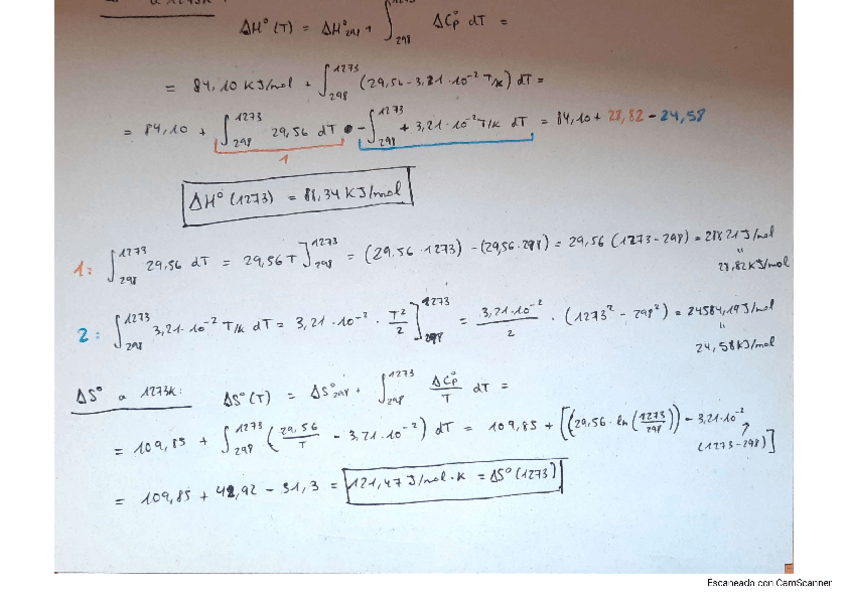 a 1273K:
ΔH°(T) = ΔH°298 + ∫₂₉₈¹²⁷³ ΔCp° dT =
= 84,10 KJ/mol + ∫₂₉₈¹²⁷³ (29,56 - 3,21·10⁻² T/K) dT =
= 84,10 + ∫₂₉₈¹²⁷³ 29,56 dT - ∫₂₉₈¹²⁷³ + 3,21·10⁻² T/K dT = 84,10 + 28,82 - 24,58
1
ΔH°(1273) = 88,34 KJ/mol
1: ∫₂₉₈¹²⁷³ 29,56 dT = 29,56 T]₂₉₈¹²⁷³ = (29,56·1273) - (29,56·298) = 29,56 (1273 - 298) = 28821 J/mol
"
28,82 KJ/mol
2: ∫₂₉₈¹²⁷³ 3,21·10⁻² T/K dT = 3,21·10⁻² · T²/2]₂₉₈¹²⁷³ = 3,21·10⁻²/2 · (1273² - 298²) = 24584,19 J/mol
"
24,58 KJ/mol
ΔS° a 1273K: ΔS°(T) = ΔS°298 + ∫₂₉₈¹²⁷³ ΔCp°/T dT =
= 109,85 + ∫₂₉₈¹²⁷³ (29,56/T - 3,21·10⁻²) dT = 109,85 + [(29,56·ln(1273/298)) - 3,21·10⁻²
(1273-298)]
= 109,85 + 42,92 - 31,3 = 121,47 J/mol·K = ΔS°(1273)
Escaneado con CamScanner